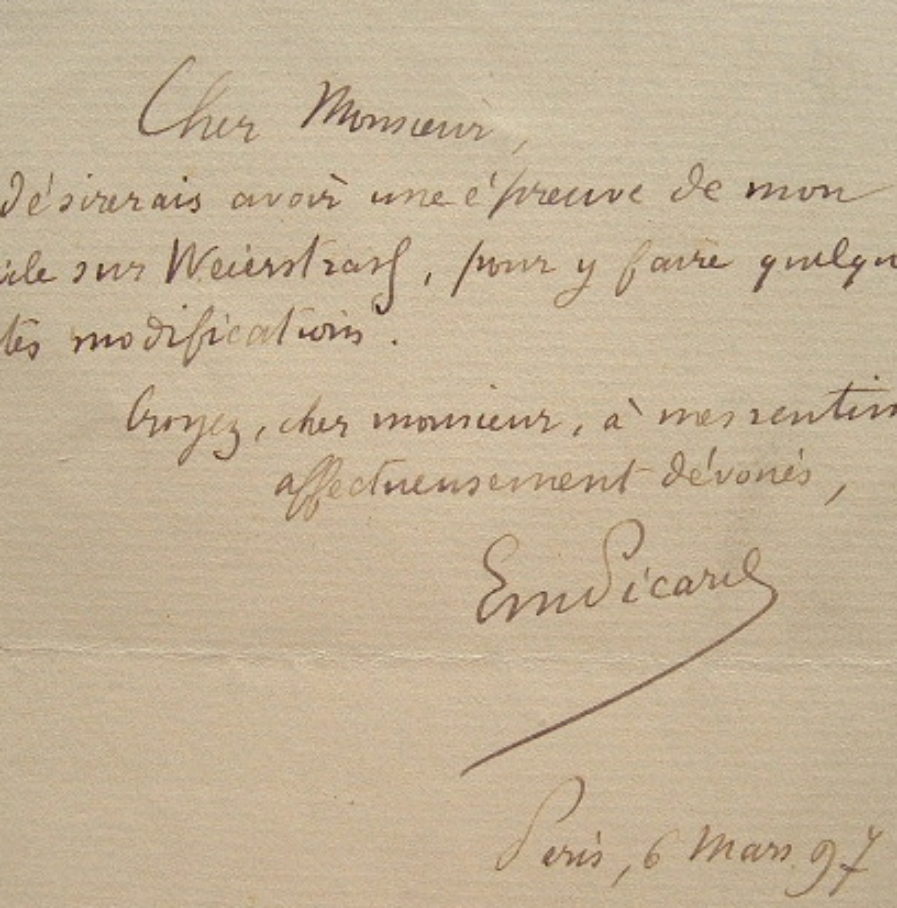 Cher Monsieur,
désirerais avoir une épreuve de mon
icle sur Weierstraß, pour y faire quelqu
tes modifications.
Croyez, cher monsieur, à mes sentim
affectueusement dévoués,
Em Picard
Paris, 6 Mars 97